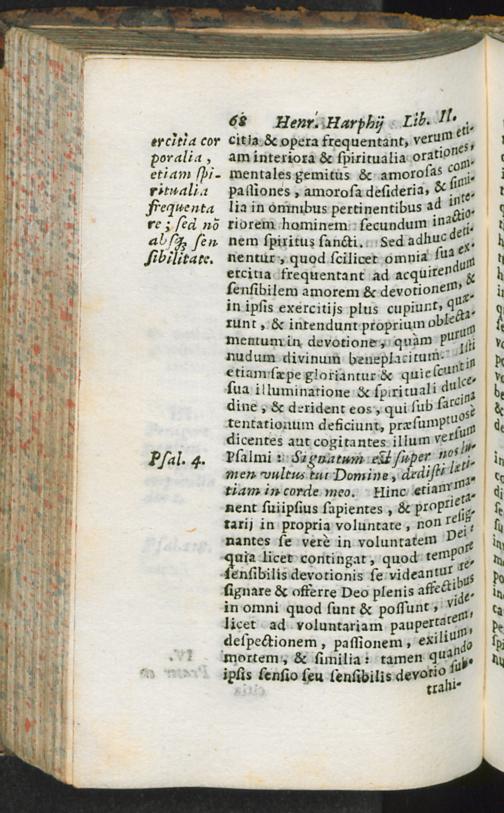 68 Henr. Harphij Lib. II.
ercitia cor
poralia,
etiam spi-
ritualia
frequenta
re; sed nō
absq; sen
sibilitate.
citia & opera frequentant, verum eti-
am interiora & spiritualia orationes,
mentales gemitus & amorosas com-
passiones, amorosa desideria, & simi-
lia in omnibus pertinentibus ad inte-
riorem hominem secundum inactio-
nem spiritus sancti. Sed adhuc deti-
nentur, quod scilicet omnia sua ex-
ercitia frequentant ad acquirendum
sensibilem amorem & devotionem, &
in ipsis exercitijs plus cupiunt, quæ-
runt, & intendunt proprium oblecta-
mentum in devotione, quàm purum
nudum divinum beneplacitum. Isti
etiam sæpe gloriantur & quiescunt in
sua illuminatione & spirituali dulce-
dine, & derident eos, qui sub sarcina
tentationum deficiunt, præsumptuosè
dicentes aut cogitantes illum versum
Psal. 4.
Psalmi: Signatum est super nos lu-
men vultus tui Domine, dedisti læti-
tiam in corde meo. Hinc etiam ma-
nent suiipsius sapientes, & proprieta-
tarij in propria voluntate, non resig-
nantes se verè in voluntatem Dei:
quia licet contingat, quod tempore
sensibilis devotionis se videantur re-
signare & offerre Deo plenis affectibus
in omni quod sunt & possunt, vide-
licet ad voluntariam paupertatem,
despectionem, passionem, exilium,
mortem, & similia: tamen quando
ipsis sensio seu sensibilis devotio sub-
trahi-